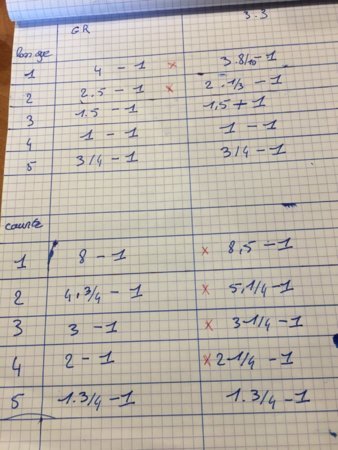 GR 3.3
longue
1 4 - 1 x 3.8/10 - 1
2 2.5 - 1 x 2.1/3 - 1
3 1.5 - 1 1,5 + 1
4 1 - 1 1 - 1
5 3/4 - 1 3/4 - 1
courte
1 8 - 1 x 8,5 - 1
2 4.3/4 - 1 x 5,1/4 - 1
3 3 - 1 x 3-1/4 - 1
4 2 - 1 x 2-1/4 - 1
5 1.3/4 - 1 1.3/4 - 1